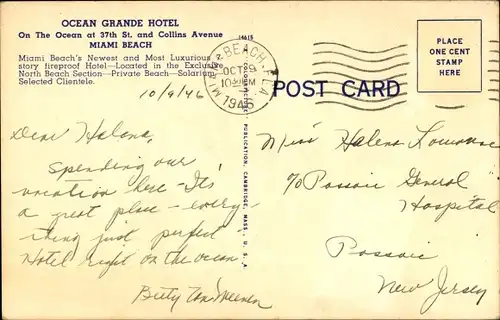 OCEAN GRANDE HOTEL
On The Ocean at 37th St. and Collins Avenue
MIAMI BEACH
Miami Beach's Newest and Most Luxurious
story fireproof Hotel—Located in the Exclusive
North Beach Section—Private Beach—Solarium
Selected Clientele.
10/9/46
Dear Helena,
Spending our
vacation here - It's
a great place - every-
thing just perfect
Hotel right on the ocean.
Betty
MIAMI BEACH, FLA.
OCT 9
1946
POST CARD
PUBLICATION, CAMBRIDGE, MASS., U. S. A.
PLACE
ONE CENT
STAMP
HERE
Miss Helena
c/o Passaic General
Hospital
Passaic
New Jersey